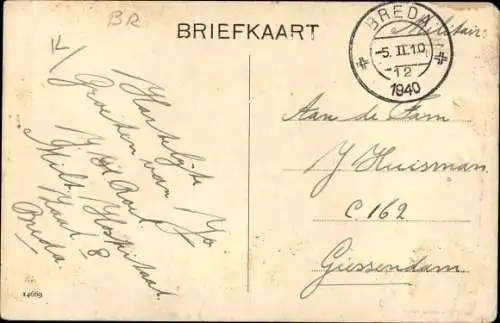 BR
BRIEFKAART
Militair
BREDA
-5.II.10
12
1940
Hartelijk
Groeten van Jo
Milt. Hospitaal
Zaal 8
Breda.
Aan de Fam
J Huisman
C 162
Giessendam
14669